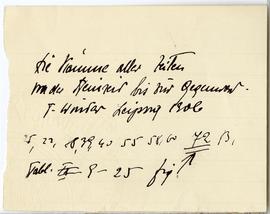 Die Kämme aller Zeiten
von der Steinzeit bis zur Gegenwart.
F. Winter Leipzig 1906
25, 27, 38, 39, 40 55 58, 60 72 B.
Tabl. III 9-25 fig